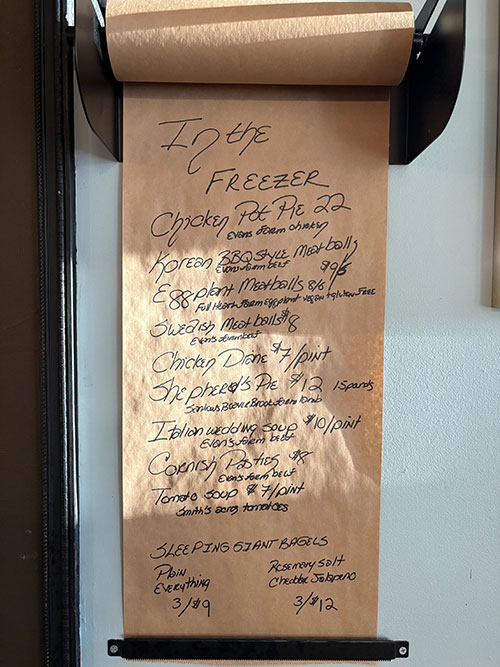 In the
FREEZER
Chicken Pot Pie 22
Evans farm chicken
Korean BBQ STYLE Meatballs
Evans farm beef $9/5
Eggplant Meatballs 8/6
Full Heart Farm Eggplant vegan + gluten FREE
Swedish Meatballs $8
Evan's farm beef
Chicken Diane $7/pint
Shepherd's Pie $12
Beaver Brook farm lamb
Italian wedding soup $10/pint
Evan's farm beef
Cornish Pasties $8
Evan's farm beef
Tomato soup $7/pint
Smith's acres tomatoes
SLEEPING GIANT BAGELS
Plain Rosemary salt
Everything Cheddar Jalapeno
3/$9 3/$12